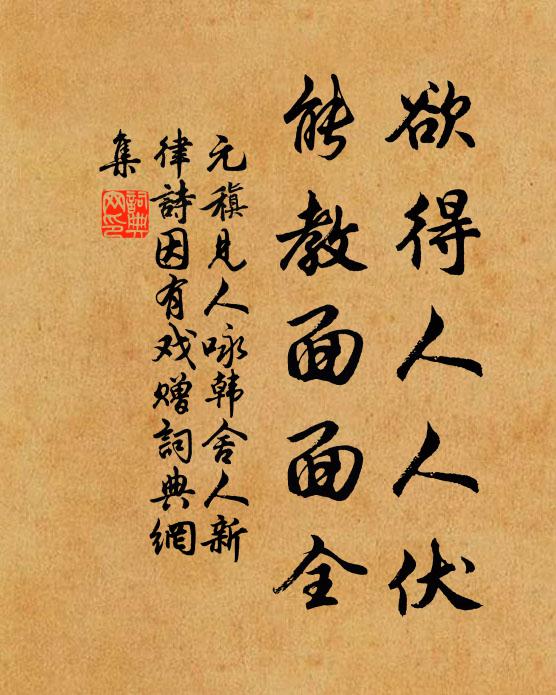 欲得人人伏
能教面面全
元稹见人咏韩舍人新
律詩因有戏赠詞典網
集
詞典
网印